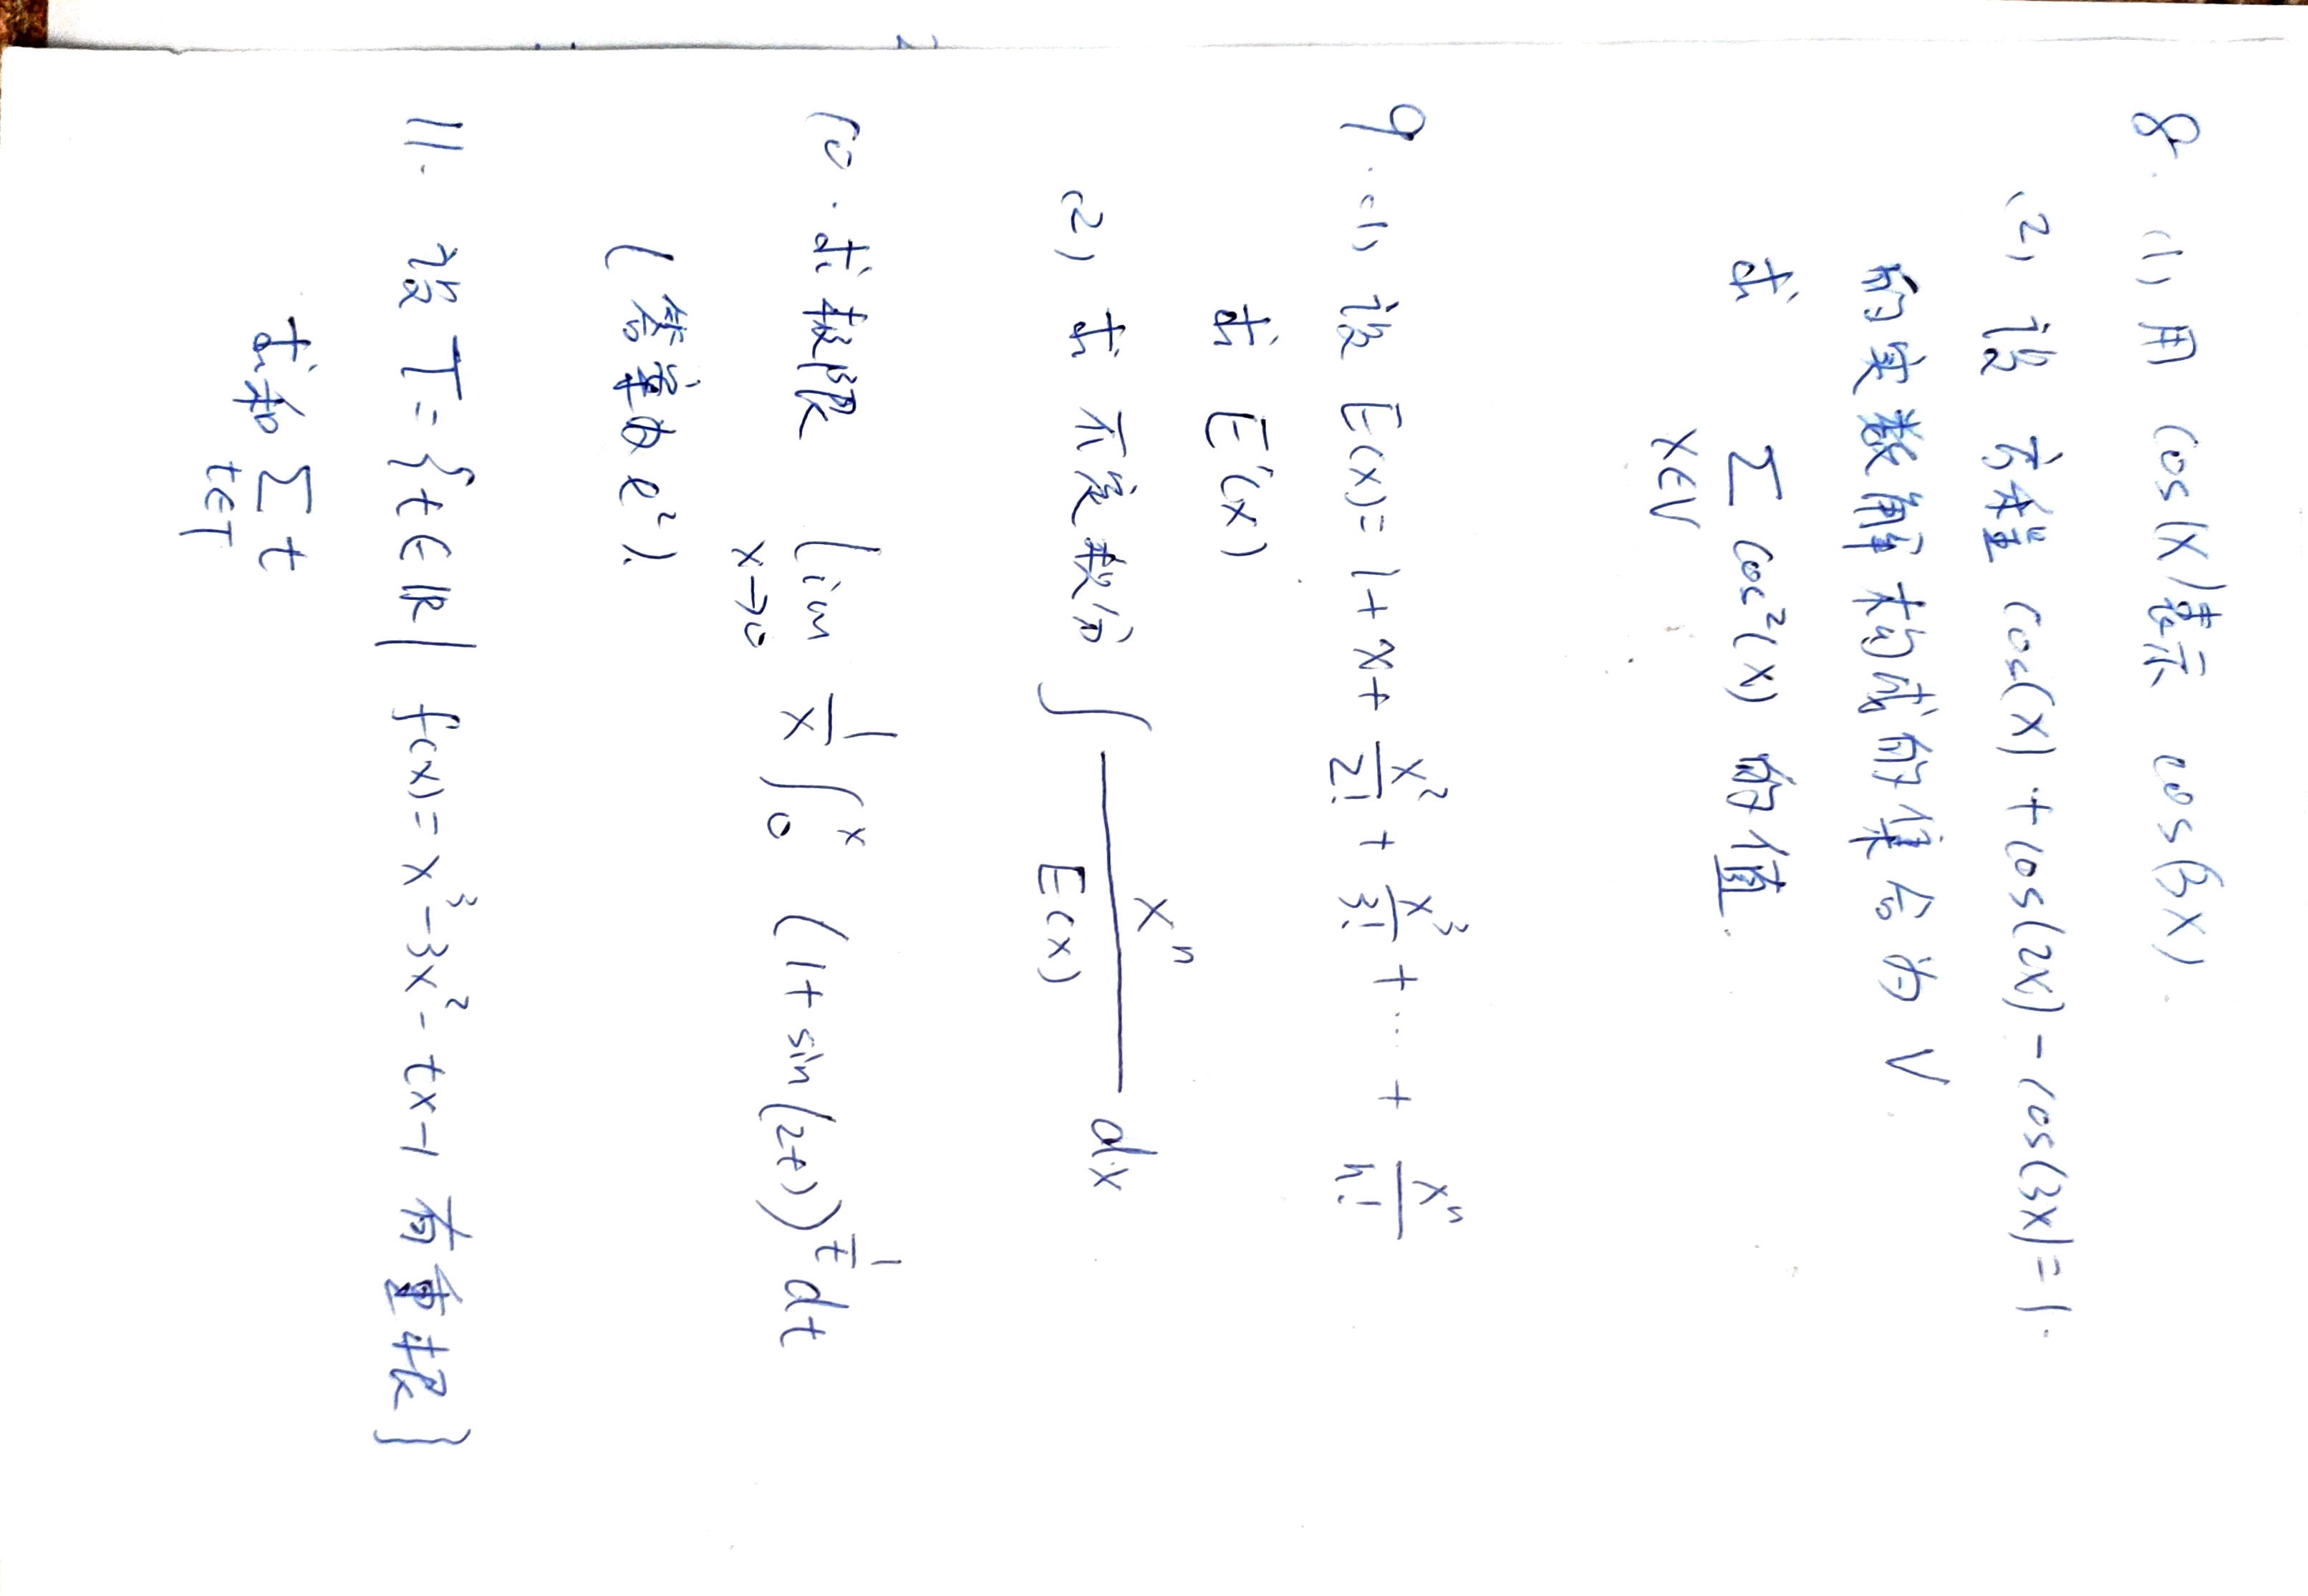 8. (1) 用 cos(x)表示 cos(3x).
(2) 设 方程 cos(x) + cos(2x) - cos(3x) = 1.
的实数解构成的集合为 V.
求 ∑ cos²(x) 的值.
x∈V
9. (1) 设 E(x) = 1 + x + x²/2! + x³/3! + … + xⁿ/n!
求 E'(x)
(2) 求 不定积分 ∫ xⁿ/E(x) dx
10. 求极限 lim 1/x ∫₀ˣ (1 + sin(2t))^(1/t) dt
x→0
(答案为 e²).
11. 设 T = {t∈ℝ | f(x) = x³-3x²-tx-1 有重根}
求和 ∑ t
t∈T